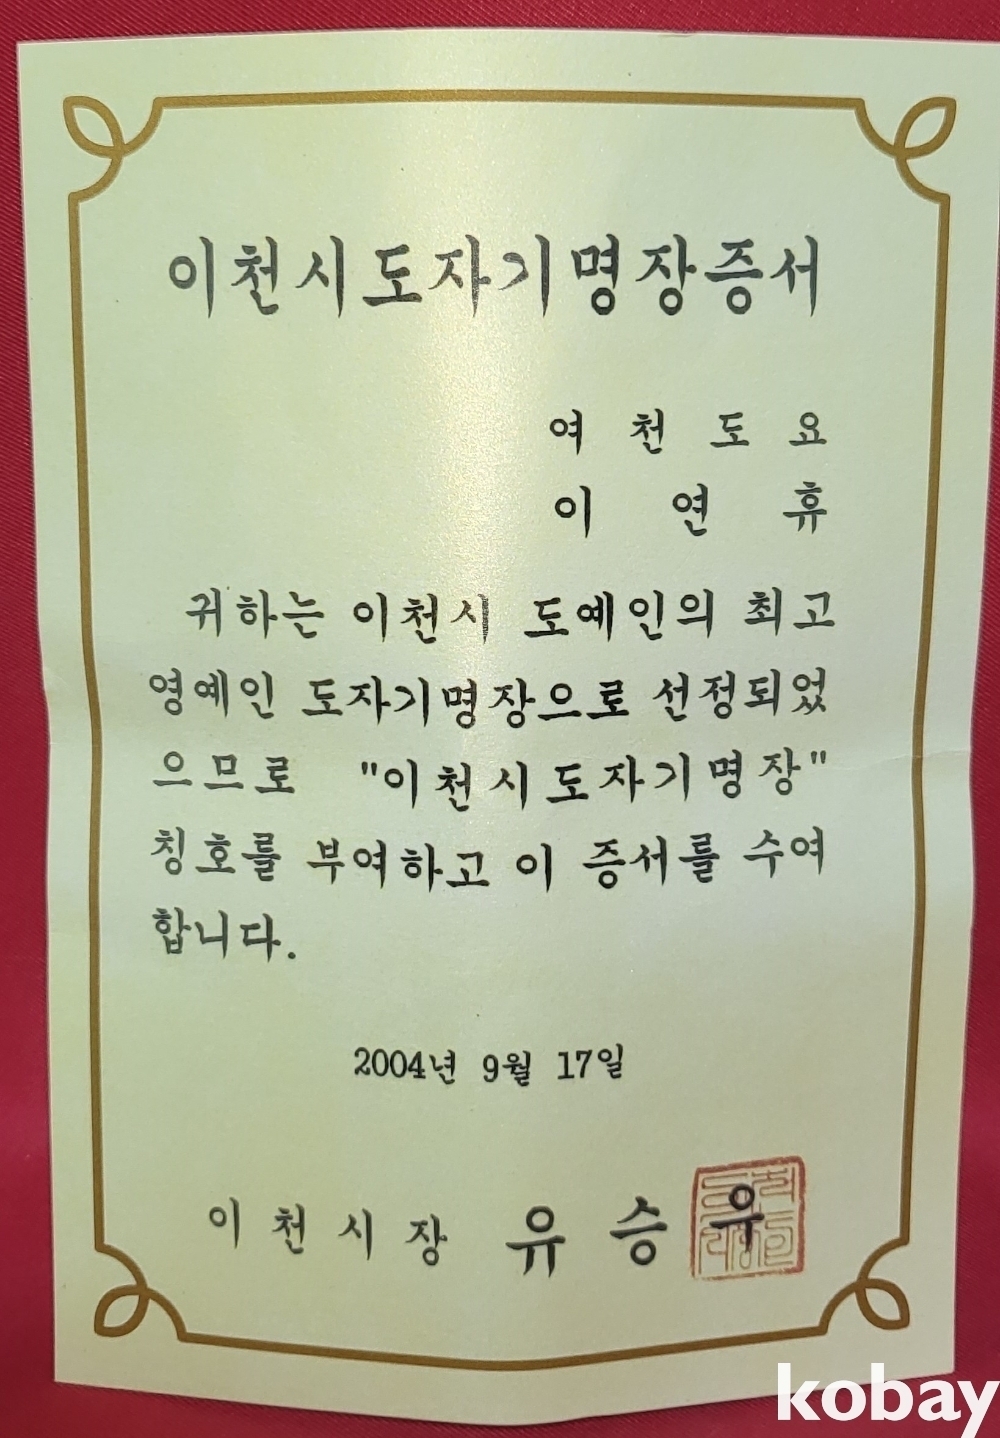 이천시도자기명장증서
여천도요
이연휴
귀하는 이천시 도예인의 최고
영예인 도자기명장으로 선정되었
으므로 "이천시도자기명장"
칭호를 부여하고 이 증서를 수여
합니다.
2004년 9월 17일
이천시장 유승우
kobay